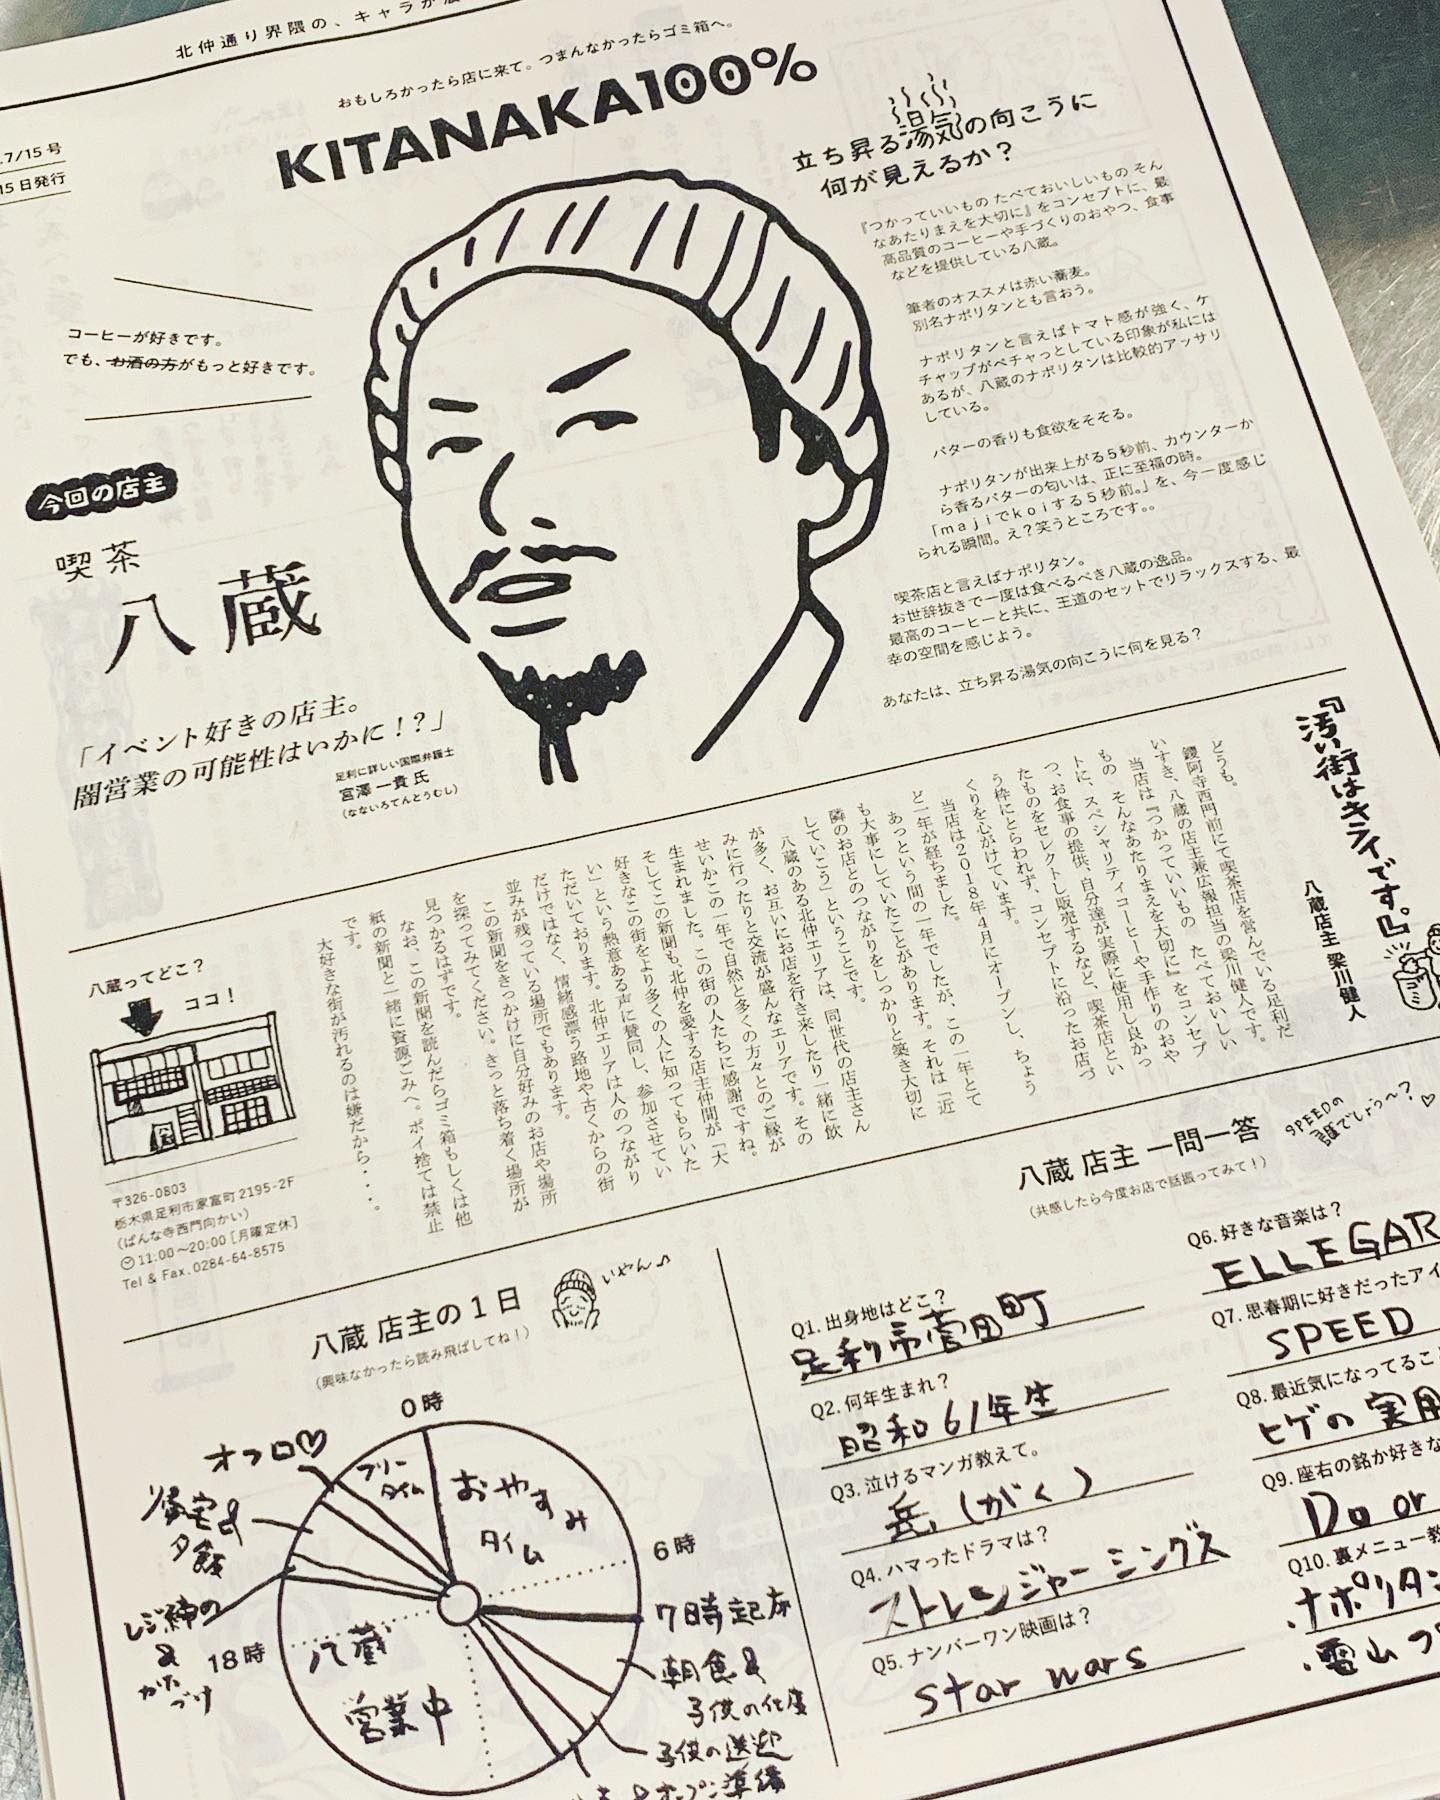 北仲通り界隈の、キャラが
おもしろかったら店に来て。つまんなかったらゴミ箱へ。
KITANAKA100%
.7/15号
15日発行
コーヒーが好きです。
でも、お酒の方がもっと好きです。
今回の店主
喫茶
八蔵
「イベント好きの店主。
闇営業の可能性はいかに!?」
足利に詳しい国際弁護士
宮澤一貴 氏
(なないろてんとうむし)
立ち昇る湯気の向こうに
何が見えるか?
『つかっていいもの たべておいしいもの そん
なあたりまえを大切に』をコンセプトに、最
高品質のコーヒーや手づくりのおやつ、食事
などを提供している八蔵。
筆者のオススメは赤い蕎麦。
別名ナポリタンとも言おう。
ナポリタンと言えばトマト感が強く、ケ
チャップがベチャっとしている印象が私には
あるが、八蔵のナポリタンは比較的アッサリ
している。
バターの香りも食欲をそそる。
ナポリタンが出来上がる5秒前、カウンターか
ら香るバターの匂いは、正に至福の時。
「majiでkoiする5秒前。」を、今一度感じ
られる瞬間。え?笑うところです。。
喫茶店と言えばナポリタン。
お世辞抜きで一度は食べるべき八蔵の逸品。
最高のコーヒーと共に、王道のセットでリラックスする、最
幸の空間を感じよう。
あなたは、立ち昇る湯気の向こうに何を見る?
『汚い街はキライです。』
八蔵店主 梁川健人
どうも。
鑁阿寺西門前にて喫茶店を営んでいる足利だ
いすき、八蔵の店主兼広報担当の梁川健人です。
当店は『つかっていいもの たべておいしい
もの そんなあたりまえを大切に』をコンセプ
トに、スペシャリティコーヒーや手作りのおや
つ、お食事の提供、自分達が実際に使用し良かっ
たものをセレクトし販売するなど、喫茶店とい
う枠にとらわれず、コンセプトに沿ったお店づ
くりを心がけています。
当店は2018年4月にオープンし、ちょう
ど一年が経ちました。
あっという間の一年でしたが、この一年とて
も大事にしていたことがあります。それは「近
隣のお店とのつながりをしっかりと築き大切に
していこう」ということです。
八蔵のある北仲エリアは、同世代の店主さん
が多く、お互いにお店を行き来したり一緒に飲
みに行ったりと交流が盛んなエリアです。その
せいかこの一年で自然と多くの方々とのご縁が
生まれました。この街の人たちに感謝ですね。
そしてこの新聞も、北仲を愛する店主仲間が「大
好きなこの街をより多くの人に知ってもらいた
い」という熱意ある声に賛同し、参加させてい
ただいております。北仲エリアは人のつながり
だけではなく、情緒感漂う路地や古くからの街
並みが残っている場所でもあります。
この新聞をきっかけに自分好みのお店や場所
を探ってみてください。きっと落ち着く場所が
見つかるはずです。
なお、この新聞を読んだらゴミ箱もしくは他
紙の新聞と一緒に資源ごみへ。ポイ捨ては禁止
です。
大好きな街が汚れるのは嫌だから・・・。
八蔵ってどこ?
ココ!
〒326-0803
栃木県足利市家富町2195-2F
(ばんな寺西門向かい)
11:00〜20:00[月曜定休]
Tel & Fax.0284-64-8575
八蔵 店主の1日
(興味なかったら読み飛ばしてね!)
いやん♪
0時
6時
18時
おやすみ
タイム
フリー
タイム
オフロ♡
夕飯
レジ締め
&
かた
づけ
八蔵
営業中
7時起床
朝食&
子供の仕度
子供の送迎
オープン準備
八蔵 店主 一問一答
(共感したら今度お店で話振ってみて!)
SPEEDの
誰でしょう〜?♡
Q1.出身地はどこ?
足利市菅田町
Q2.何年生まれ?
昭和61年生
Q3.泣けるマンガ教えて。
岳(がく)
Q4.ハマったドラマは?
ストレンジャーシングス
Q5.ナンバーワン映画は?
star wars
Q6.好きな音楽は?
ELLEGAR
Q7.思春期に好きだったアイ
SPEED
Q8.最近気になってるこ
ヒゲの実用
Q9.座右の銘か好きな
Do or
Q10.裏メニュー教
・ナポリタン